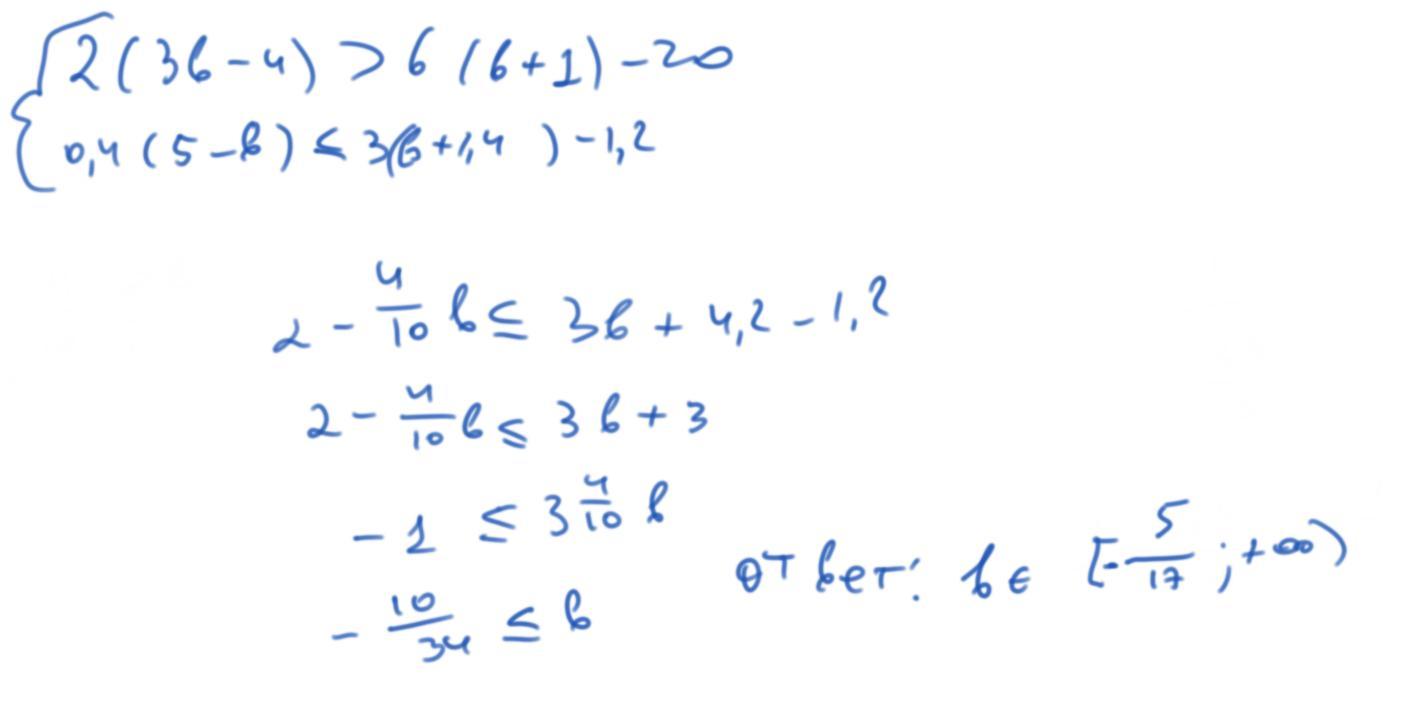 2(3b-4) > 6(b+1)-20
0,4(5-b) ≤ 3(b+1,4)-1,2
2 - 4/10 b ≤ 3b + 4,2 - 1,2
2 - 4/10 b ≤ 3b + 3
-1 ≤ 3 4/10 b
- 10/34 ≤ b
ответ: b ∈ [-5/17 ; +∞)